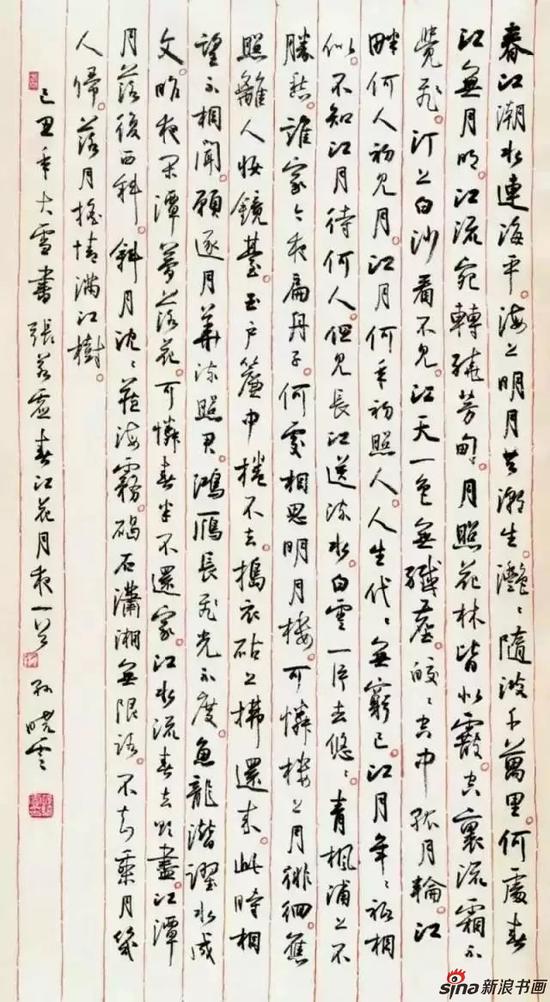 春江潮水連海平。海上明月共潮生。灩々隨波千萬里。何處春
江無月明。江流宛轉繞芳甸。月照花林皆似霰。空裏流霜不
覺飛。汀上白沙看不見。江天一色無纖塵。皎々空中孤月輪。江
畔何人初見月。江月何年初照人。人生代々無窮已。江月年々祇相
似。不知江月待何人。但見長江送流水。白雲一片去悠々。青楓浦上不
勝愁。誰家今夜扁舟子。何處相思明月樓。可憐樓上月徘徊。應
照離人妝鏡臺。玉戶簾中捲不去。搗衣砧上拂還來。此時相
望不相聞。願逐月華流照君。鴻雁長飛光不度。魚龍潛躍水成
文。昨夜閑潭夢落花。可憐春半不還家。江水流春去欲盡。江潭
月落復西斜。斜月沈々藏海霧。碣石瀟湘無限路。不知乘月幾
人歸。落月搖情滿江樹。
己丑年大雪書張若虛春江花月夜一首 孫曉雲
sina新浪书画